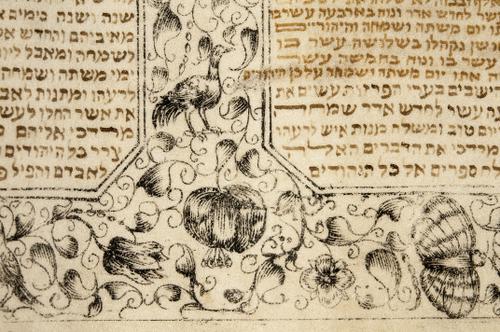 עשר לחדש אדר ונוח בארבעה עשר בו
יום משתה ושמחה והיהודיים
שושן נקהלו בשלושה עשר בו
עשר בו ונוח בחמשה עשר
אתו יום משתה ושמחה על כן היהודים
ישבים בערי הפרזות עשים את
עשר לחדש אדר שמחה
יום טוב ומשלח מנות איש לרעהו
מרדכי את הדברים האלה
ספרים אל כל היהודים
שנה ושנה כימים
מאיביהם והחדש
לשמחה ומאבל ליום
ימי משתה ושמחה
לרעהו ומתנות
את אשר החלו לעש
מרדכי אליהם
צרר כל היהודים
לאבדם והפיל פ